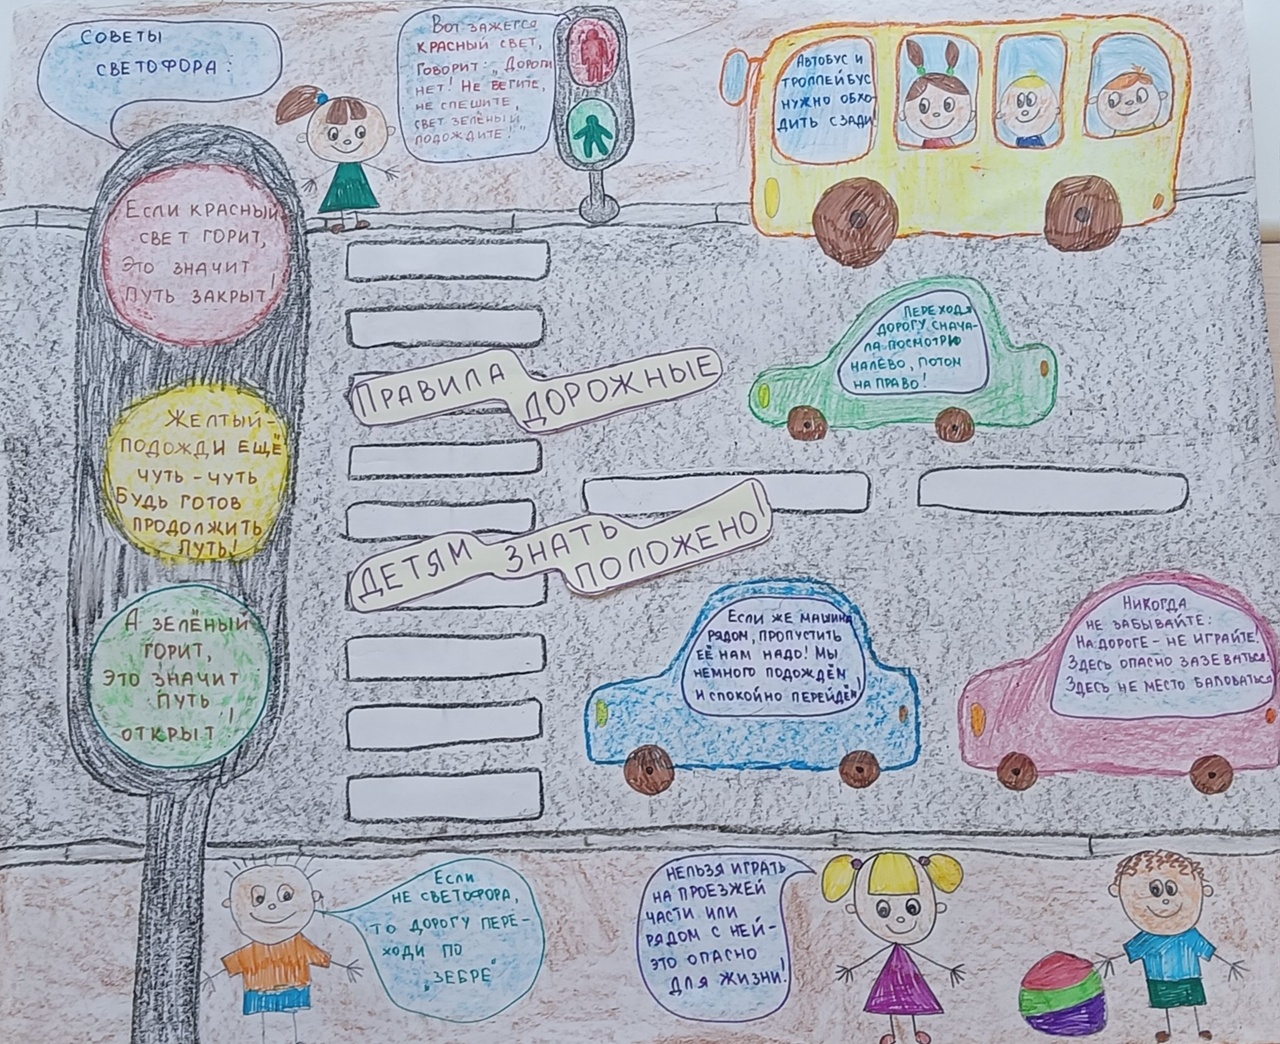 СОВЕТЫ
СВЕТОФОРА:
ЕСЛИ КРАСНЫЙ
СВЕТ ГОРИТ,
ЭТО ЗНАЧИТ
ПУТЬ ЗАКРЫТ!
ЖЕЛТЫЙ-
ПОДОЖДИ ЕЩЁ
ЧУТЬ-ЧУТЬ
БУДЬ ГОТОВ
ПРОДОЛЖИТЬ
ПУТЬ!
А ЗЕЛЁНЫЙ
ГОРИТ,
ЭТО ЗНАЧИТ
ПУТЬ
ОТКРЫТ!
ВОТ ЗАЖЕГСЯ
КРАСНЫЙ СВЕТ,
ГОВОРИТ: „ДОРОГИ
НЕТ! НЕ БЕГИТЕ,
НЕ СПЕШИТЕ,
СВЕТ ЗЕЛЁНЫЙ
ПОДОЖДИТЕ!"
АВТОБУС И
ТРОЛЛЕЙБУС
НУЖНО ОБХО-
ДИТЬ СЗАДИ!
ПРАВИЛА ДОРОЖНЫЕ
ДЕТЯМ ЗНАТЬ ПОЛОЖЕНО!
ПЕРЕХОДЯ
ДОРОГУ СНАЧА-
ЛА ПОСМОТРЮ
НАЛЕВО, ПОТОМ
НАПРАВО!
ЕСЛИ ЖЕ МАШИНА
РЯДОМ, ПРОПУСТИТЬ
ЕЁ НАМ НАДО! МЫ
НЕМНОГО ПОДОЖДЁМ
И СПОКОЙНО ПЕРЕЙДЁМ!
НИКОГДА
НЕ ЗАБЫВАЙТЕ:
НА ДОРОГЕ - НЕ ИГРАЙТЕ!
ЗДЕСЬ ОПАСНО ЗАЗЕВАТЬСЯ.
ЗДЕСЬ НЕ МЕСТО БАЛОВАТЬСЯ
ЕСЛИ
НЕ СВЕТОФОРА,
ТО ДОРОГУ ПЕРЕ-
ХОДИ ПО
„ЗЕБРЕ"
НЕЛЬЗЯ ИГРАТЬ
НА ПРОЕЗЖЕЙ
ЧАСТИ ИЛИ
РЯДОМ С НЕЙ-
ЭТО ОПАСНО
ДЛЯ ЖИЗНИ!